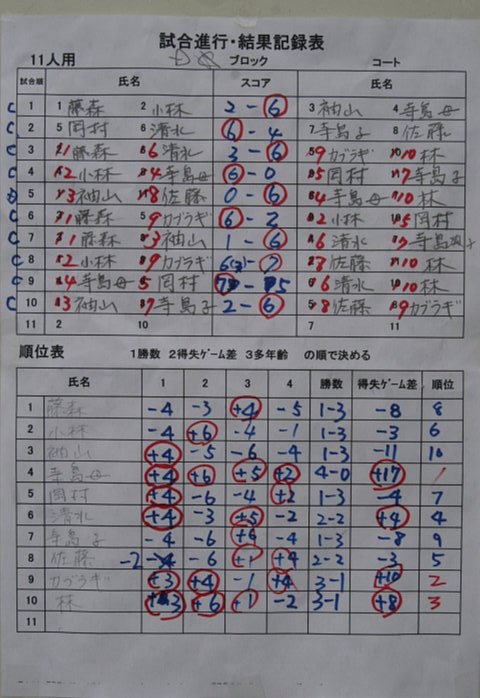 試合進行・結果記録表
11人用 ブロック コート
試合順 氏名 スコア 氏名
1 1 藤森 2 小林 2 - 6 3 袖山 4 寺島母
2 5 岡村 6 清水 6 - 4 7 寺島子 8 佐藤
3 1 藤森 6 清水 3 - 6 9 カブラギ 10 林
4 2 小林 4 寺島母 6 - 0 5 岡村 7 寺島子
5 3 袖山 8 佐藤 0 - 6 4 寺島母 10 林
6 1 藤森 9 カブラギ 6 - 2 2 小林 5 岡村
7 1 藤森 3 袖山 1 - 6 6 清水 7 寺島子
8 2 小林 9 カブラギ 6 - 7 8 佐藤 10 林
9 4 寺島母 5 岡村 7 - 5 6 清水 10 林
10 3 袖山 7 寺島子 2 - 6 8 佐藤 9 カブラギ
11 2 10 7 11
順位表 1勝数 2得失ゲーム差 3多年齢 の順で決める
氏名 1 2 3 4 勝数 得失ゲーム差 順位
1 藤森 -4 -3 +4 -5 1-3 -8 8
2 小林 -4 +6 -4 -1 1-3 -3 6
3 袖山 +4 -5 -6 -4 1-3 -11 10
4 寺島母 +4 +6 +5 +2 4-0 +17 1
5 岡村 +4 -6 -4 +2 1-3 -4 7
6 清水 +4 -3 +5 -2 2-2 +4 4
7 寺島子 -4 -6 +6 -4 1-3 -8 9
8 佐藤 -2 -6 +1 +4 2-2 -3 5
9 カブラギ +3 +4 -1 +4 3-1 +10 2
10 林 +3 +6 +1 -2 3-1 +8 3
11